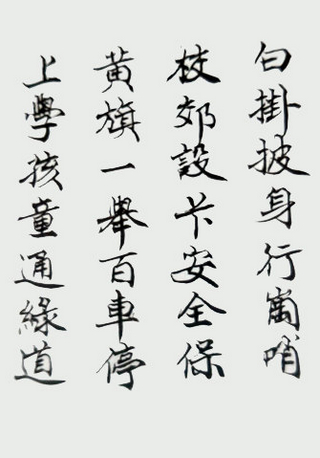 白掛披身行崗哨
校郊設卡安全保
黃旗一舉百車停
上學孩童通綠道